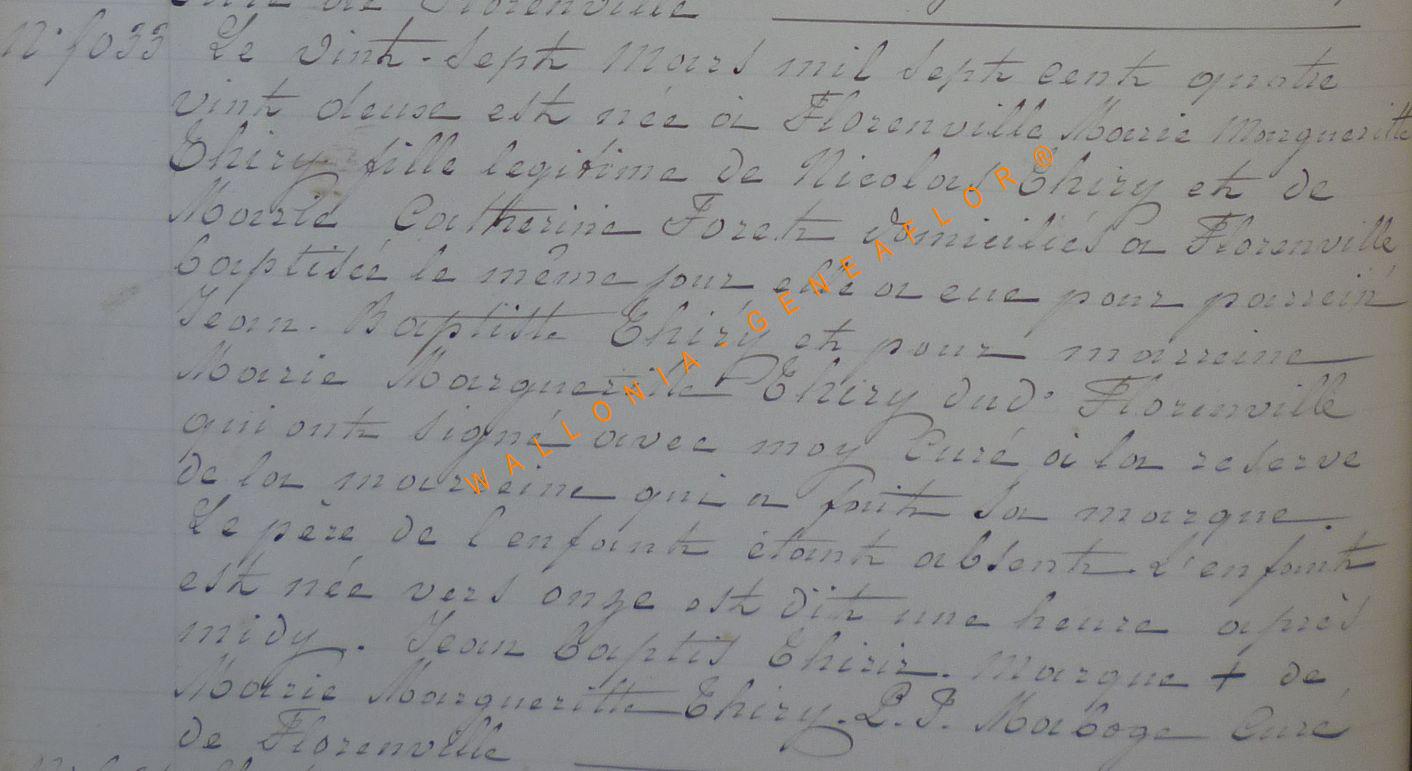 Curé de Florenville
N° 1033 Le vint-sept Mars mil sept cent quatre
vint deuse est née à Florenville Marie Margueritte
Thiry fille legitime de Nicolas Thiry et de
Marie Catherine Foret domiciliés a Florenville
baptisée le même jour elle a eue pour parrein
Jean-Baptiste Thiry et pour marreine
Marie Margueritte Thiry dud° Florenville
qui ont signé avec moy Curé à la reserve
de la marreine qui a fait sa marque.
Le père de l'enfant étant absent. L'enfant
est née vers onze est dit une heure après
midy. Jean baptis Thirir. Marque + de
Marie Margueritte Thiry. P. J. Maboge Curé
de Florenville
WALLONIA - GENEAFLOR ®